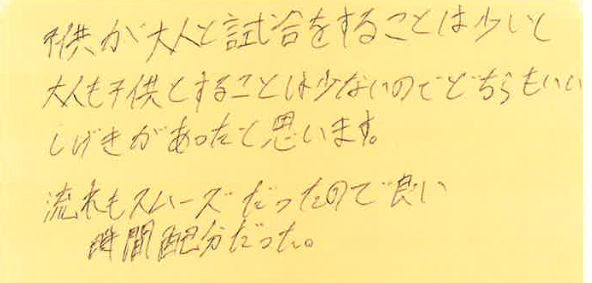 子供が大人と試合をすることは少いと
大人も子供とすることは少ないのでどちらもいい
しげきがあったと思います。
流れもスムーズだったので良い
時間配分だった。